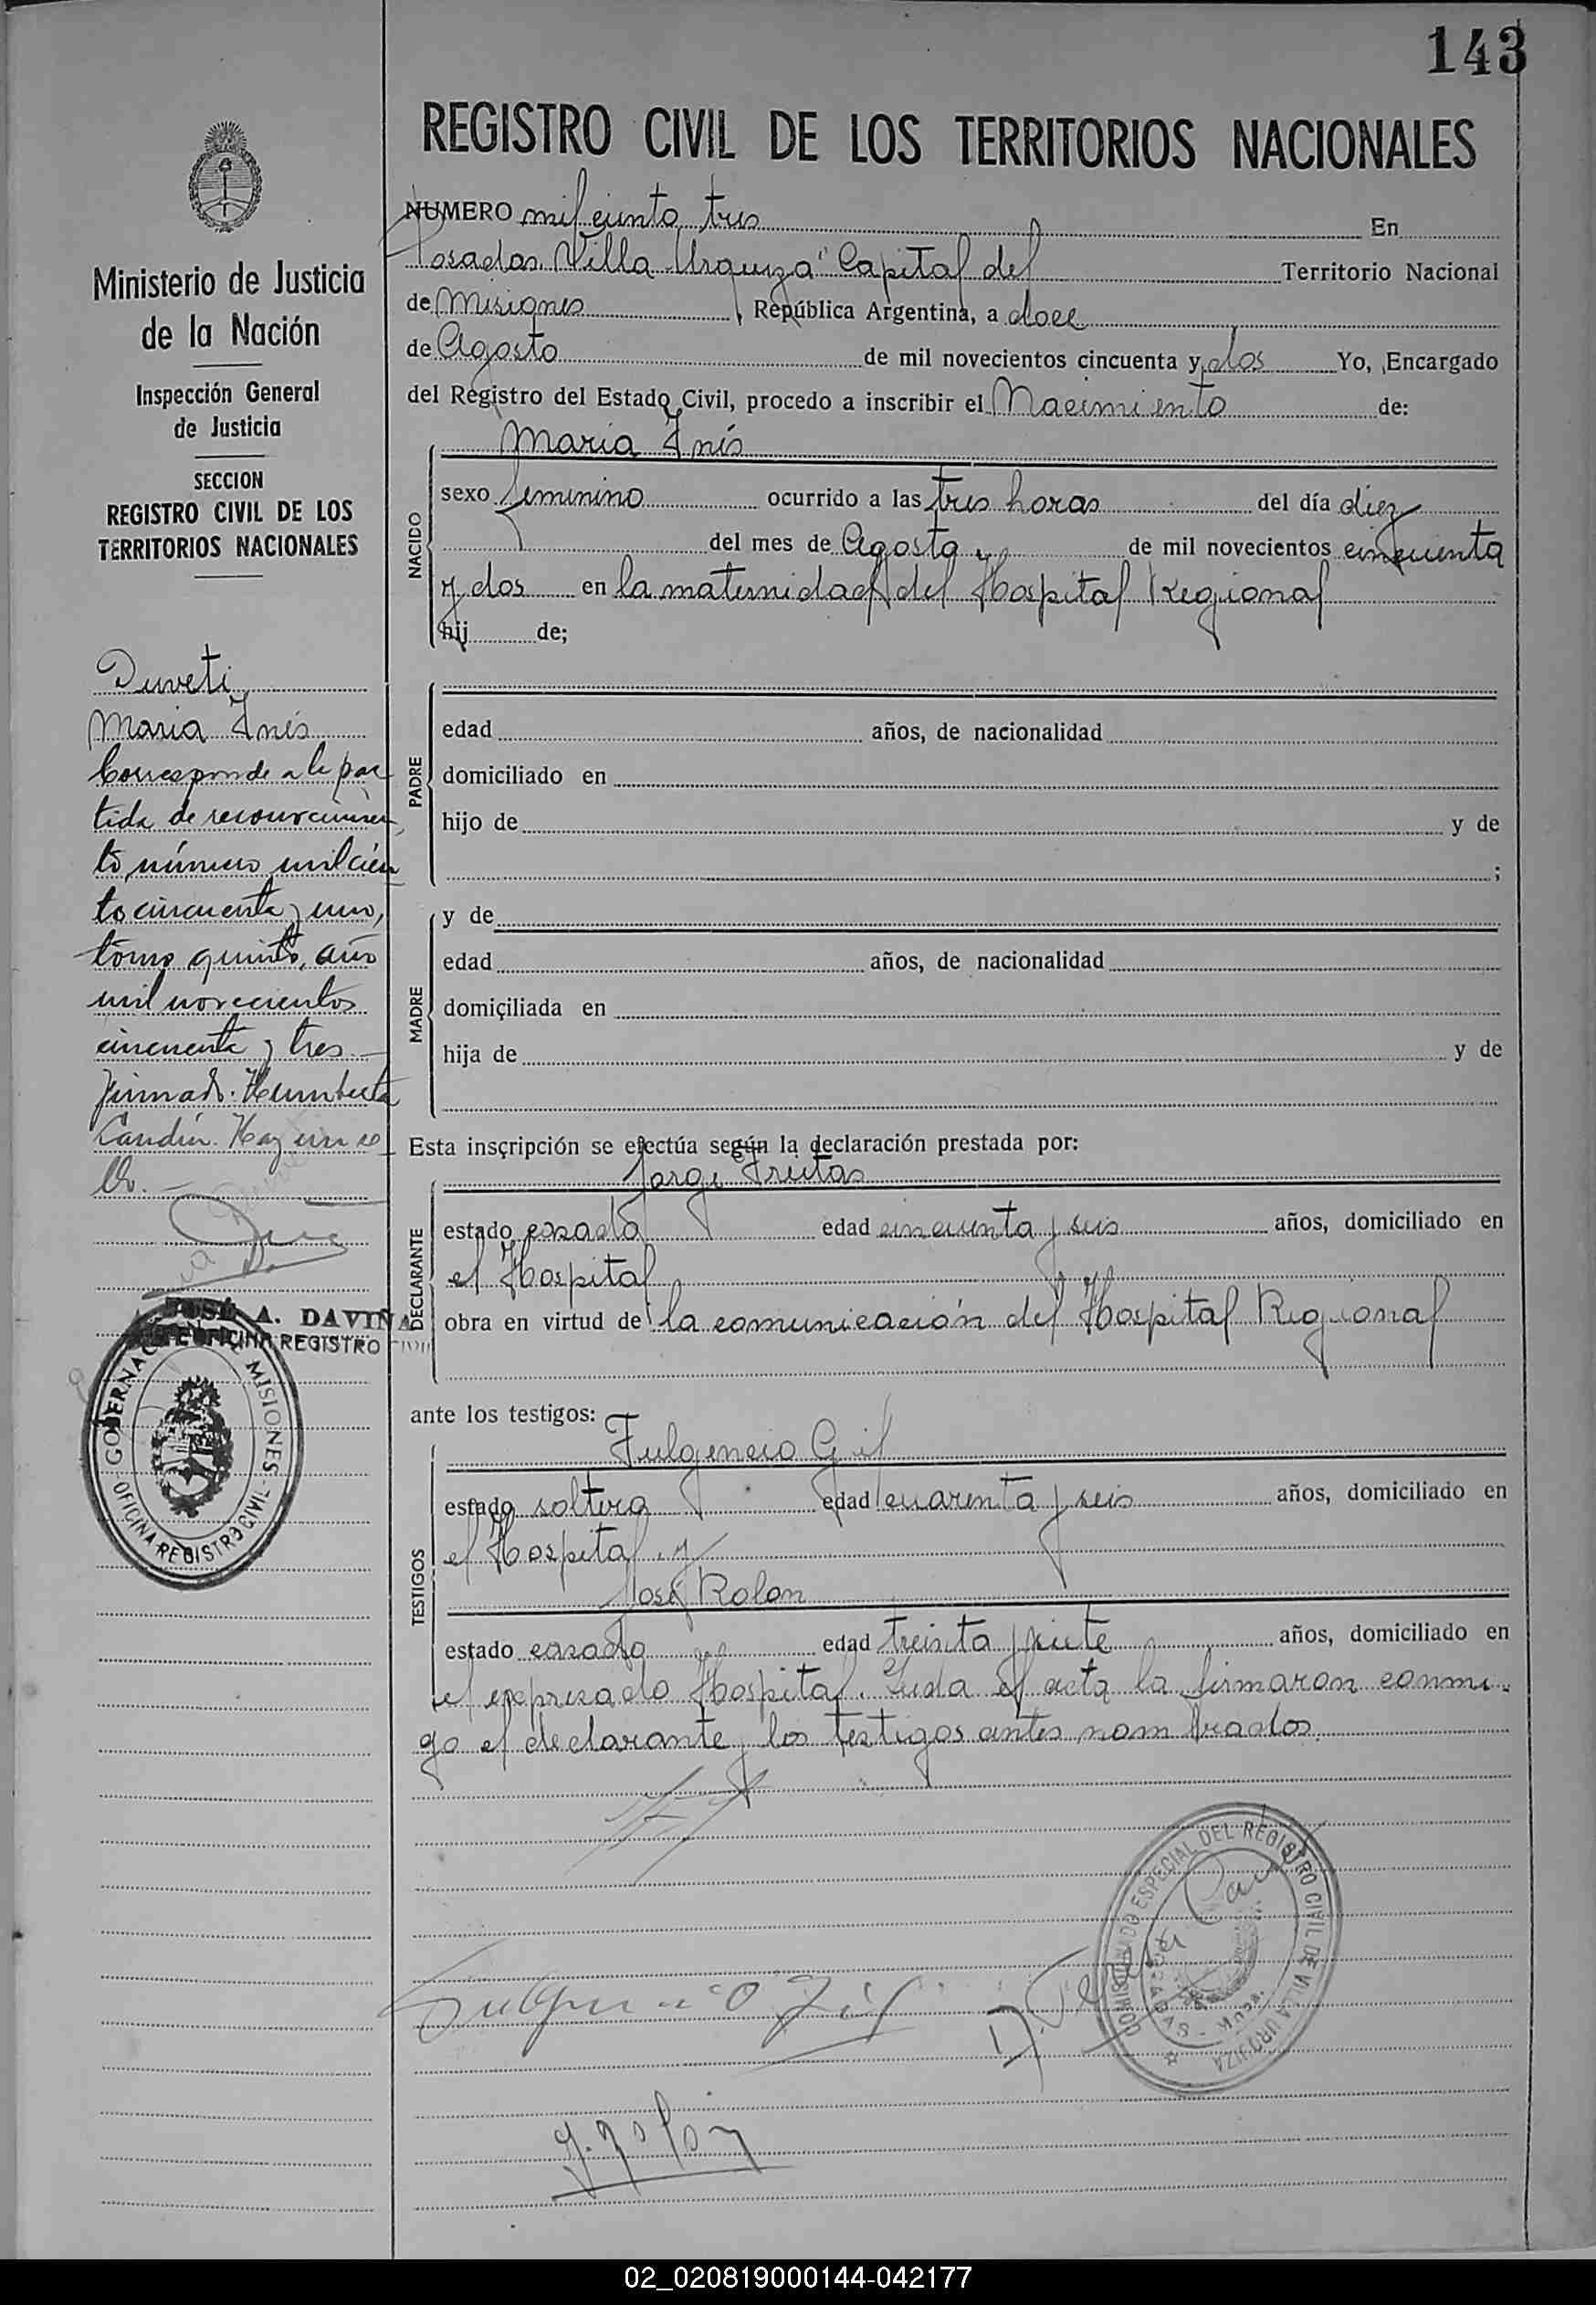 143
REGISTRO CIVIL DE LOS TERRITORIOS NACIONALES
NUMERO mil ciento tres En
Posadas "Villa Urquiza" Capital del Territorio Nacional
de Misiones, República Argentina, a doce
de Agosto de mil novecientos cincuenta y dos Yo, Encargado
del Registro del Estado Civil, procedo a inscribir el Nacimiento de:
Maria Inés
NACIDO
sexo femenino ocurrido a las tres horas del día diez
del mes de Agosto de mil novecientos cincuenta
y dos en la maternidad del Hospital Regional
hij de;
PADRE
edad años, de nacionalidad
domiciliado en
hijo de y de
;
MADRE
y de
edad años, de nacionalidad
domiciliada en
hija de y de
Esta inscripción se efectúa según la declaración prestada por:
Jorge Freitas
DECLARANTE
estado casado edad cincuenta y seis años, domiciliado en
el Hospital
obra en virtud de la comunicación del Hospital Regional
ante los testigos:
Fulgencio Gil
TESTIGOS
estado soltero edad cuarenta y seis años, domiciliado en
el Hospital y
José Rolon
estado casado edad treinta y siete años, domiciliado en
el expresado Hospital. Leida el acta la firmaron conmi-
go el declarante y los testigos antes nombrados
Fulgencio Gil
J. Rolon
COMISIONADO ESPECIAL DEL REGISTRO CIVIL DE VILLA URQUIZA
Ministerio de Justicia
de la Nación
Inspección General
de Justicia
SECCION
REGISTRO CIVIL DE LOS
TERRITORIOS NACIONALES
Duveti
Maria Inés
Corresponde a la par
tida de reconocimien
to número mil cien
to cincuenta y uno,
tomo quinto, año
mil novecientos
cincuenta y tres
firmado. Humberto
Hay un se
llo.
JOSÉ A. DAVIÑA
OFICINA REGISTRO
GOBERNACION MISIONES
OFICINA REGISTRO CIVIL
02_020819000144-042177